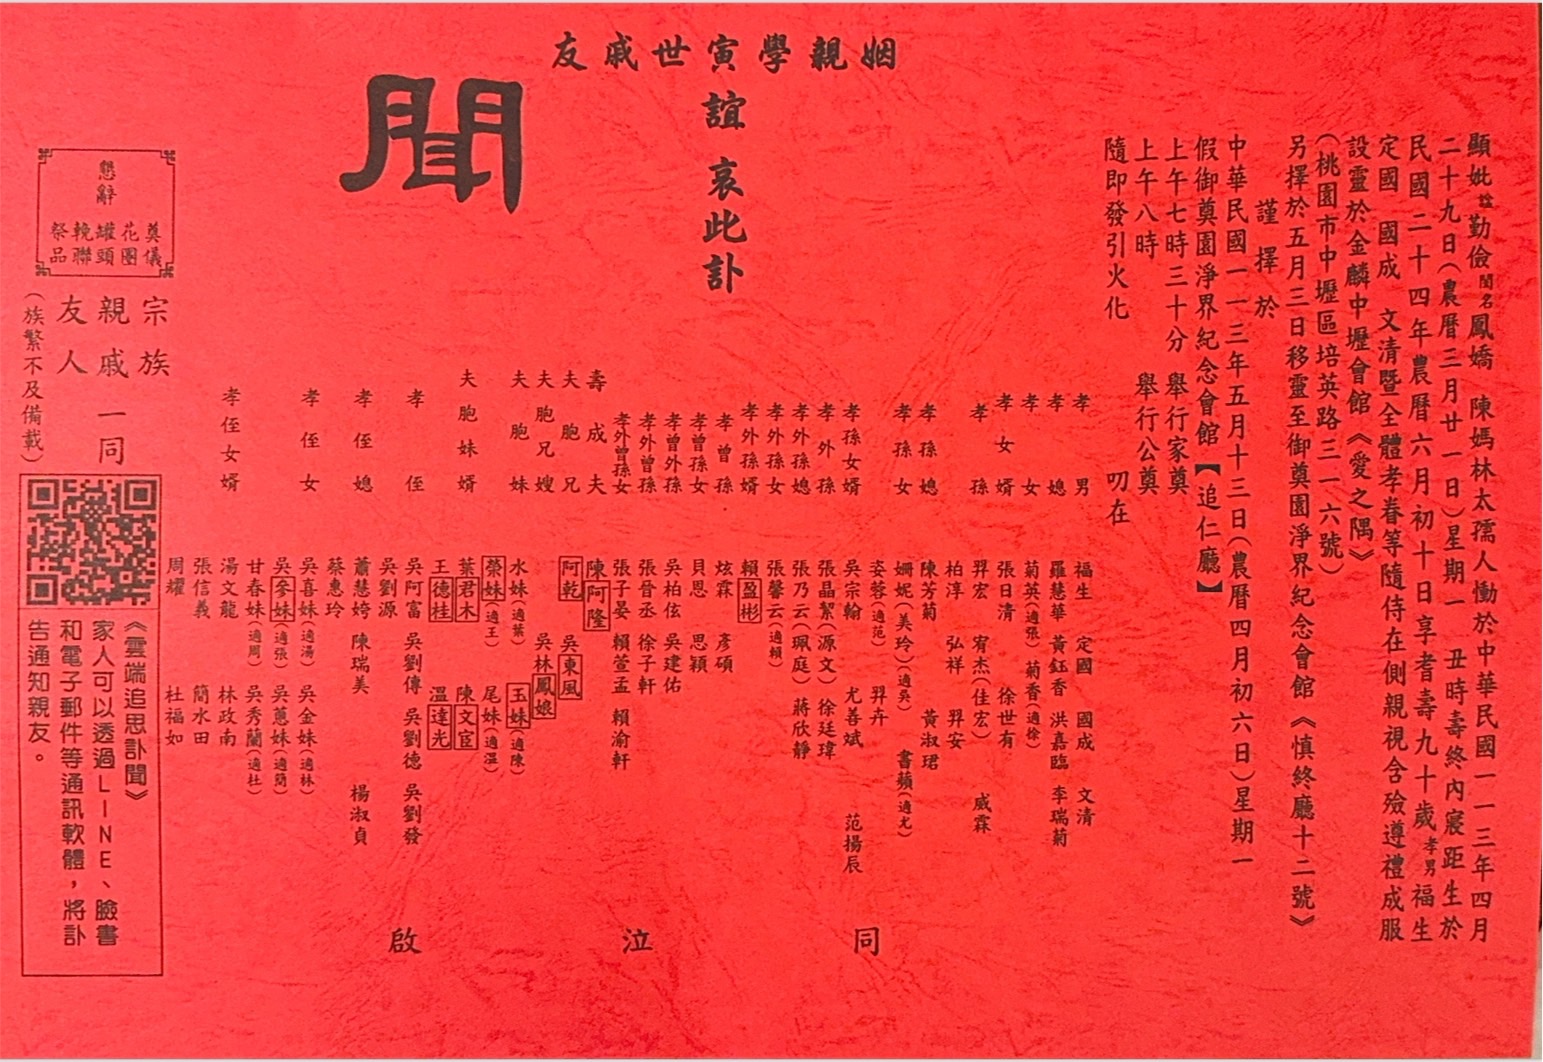 顯妣諡勤儉閨名鳳嬌 陳媽林太孺人慟於中華民國一一三年四月
二十九日(農曆三月廿一日)星期一 丑時壽終內寢距生於
民國二十四年農曆六月初十日享耆壽九十歲孝男福生
定國 國成 文清暨全體孝眷等隨侍在側親視含殮遵禮成服
設靈於金麟中壢會館《愛之隅》
(桃園市中壢區培英路三一六號)
另擇於五月三日移靈至御奠園淨界紀念會館《慎終廳十二號》
謹擇於
中華民國一一三年五月十三日(農曆四月初六日)星期一
假御奠園淨界紀念會館【追仁廳】
上午七時三十分 舉行家奠
上午八時 舉行公奠
隨即發引火化 叨在
姻親學寅世戚友
誼 哀此訃
聞
孝男 福生 定國 國成 文清
孝媳 羅慧華 黃鈺香 洪嘉臨 李瑞菊
孝女 菊英(適張) 菊香(適徐)
孝女婿 張日清 徐世有
孝孫 羿宏 宥杰(佳宏) 威霖
柏淳 弘祥 羿安
孝孫媳 陳芳菊 黃淑珺
孝孫女 姍妮(美玲)(適吳) 書蘋(適尤)
姿蓉(適范) 羿卉
孝孫女婿 吳宗翰 尤善斌 范揚辰
孝外孫 張晶絜(源文) 徐廷瑋
孝外孫媳 張乃云(珮庭) 蔣欣靜
孝外孫女 張馨云(適賴)
孝外孫婿 賴盈彬
孝曾孫 炫霖 彥碩
孝曾孫女 貝恩 思穎
孝曾外孫 吳柏伭 吳建佑
孝外曾孫 張晉丞 徐子軒
孝外曾孫女 張子晏 賴萱孟 賴渝軒
壽成夫 陳阿隆
夫胞兄 阿乾 吳東風
夫胞兄嫂 吳林鳳娘
夫胞妹 水妹(適葉) 玉妹(適陳)
榮妹(適王) 尾妹(適溫)
夫胞妹婿 葉君木 陳文宦
王德桂 溫達光
孝侄 吳阿富 吳劉傳 吳劉德 吳劉發
吳劉源
孝侄媳 蕭慧姱 陳瑞美 楊淑貞
蔡惠玲
孝侄女 吳喜妹(適湯) 吳金妹(適林)
吳參妹(適張) 吳蕙妹(適簡)
甘春妹(適周) 吳秀蘭(適杜)
孝侄女婿 湯文龍 林政南
張信義 簡水田
周耀 杜福如
同 泣 啟
宗族
親戚 一同
友人
(族繁不及備載)
懇辭
奠儀
花圈
罐頭
輓聯
祭品
《雲端追思訃聞》
家人可以透過LINE、臉書
和電子郵件等通訊軟體,將訃
告通知親友。